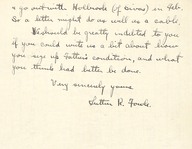 & go out with Holbrook (of Cairo) in Feb.
So a letter might do as well as a cable.
I should be greatly indebted to you
if you could write us a bit about how
you size up Father's condition, and what
you think had better be done.
Very sincerely yours
Luther R. Fowle